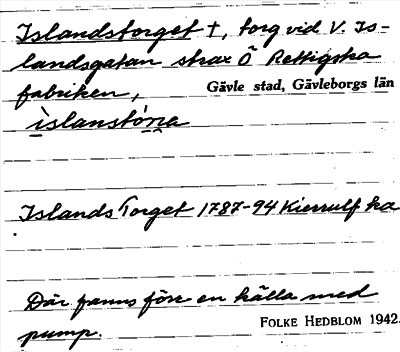 Islandstorget †, torg vid V. Is-
landsgatan strax Ö Rettigska
fabriken,
Gävle stad, Gävleborgs län
ìslanstór̲a
Islands Torget 1787-94 Kierrulf ka
Där fanns förr en källa med
pump.
FOLKE HEDBLOM 1942.